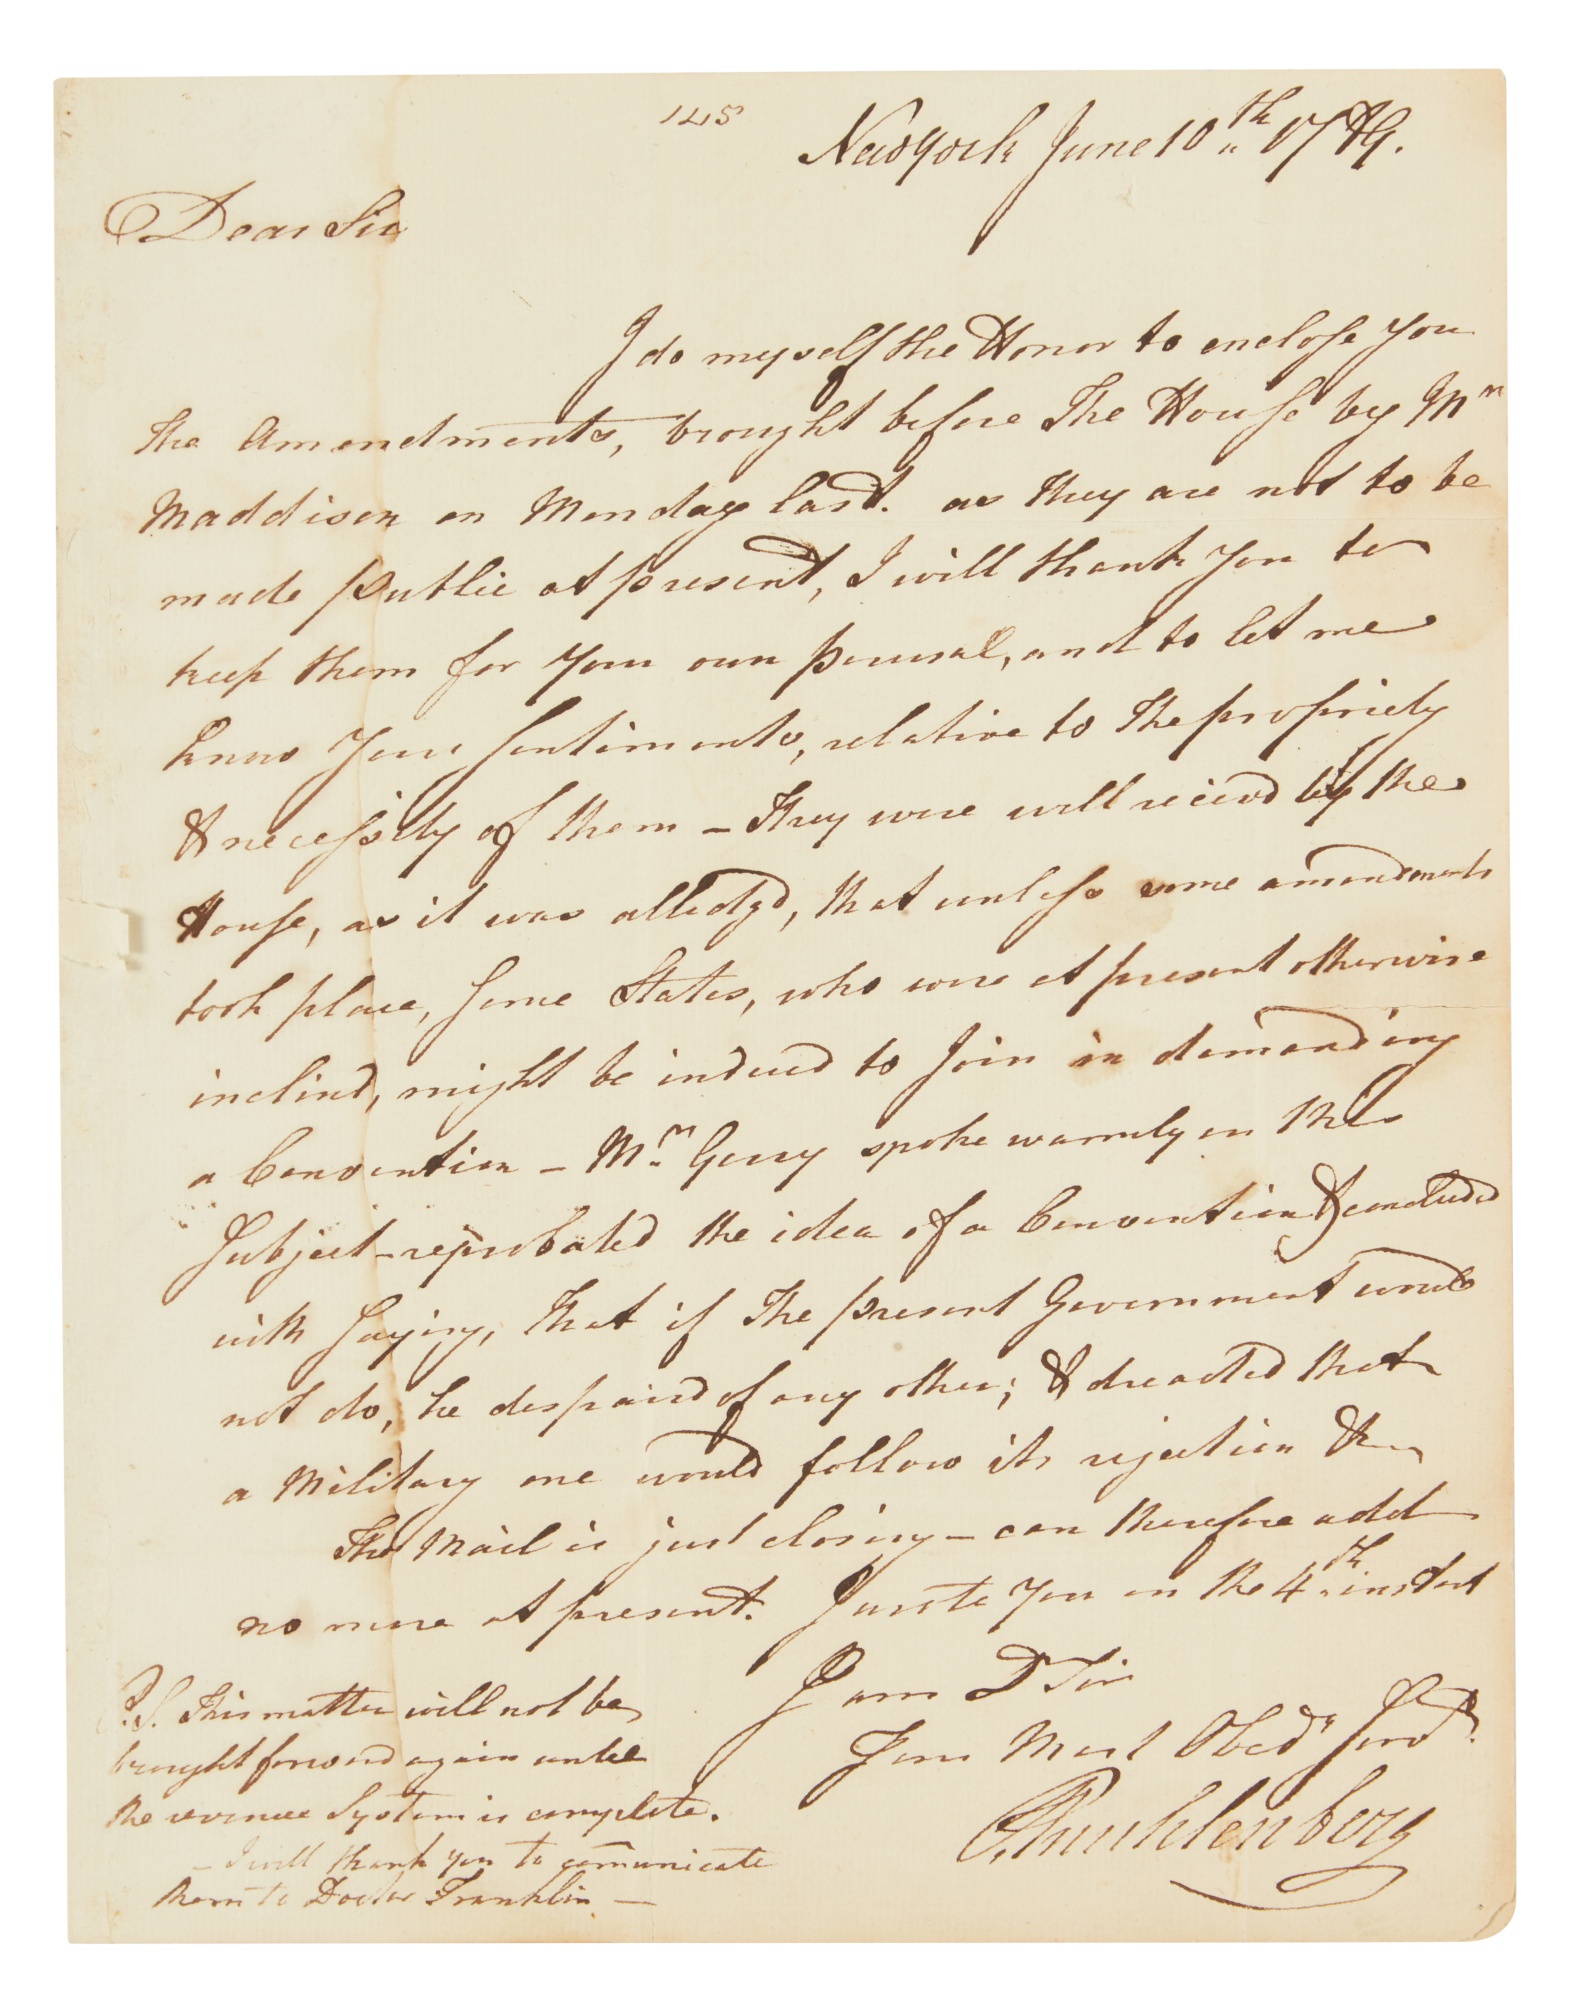 145
NewYork June 10th 1789.
Dear Sir
I do myself the Honor to enclose you
the Amendments, brought before The House by Mr
Maddison on Monday last. as they are not to be
made public at present, I will thank you to
keep them for your own perusal, and to let me
know Your sentiments, relative to The propriety
& necessity of them – They were well recievd by the
House, as it was alledgd, that unless some amendments
took place, some States, who were at present otherwise
inclind, might be induced to join in demanding
a Convention – Mr. Gerry spoke warmly on this
Subject – reprobated the idea of a Convention & concluded
with saying, That if The present Government would
not do, he despaird of any other; & dreaded that
a Military one would follow its rejection &c
The Mail is just closing – can therefore add
no more at present. I wrote You on the 4th. instant
I am D Sir
Your Most Obedt Servt.
P.S. This matter will not be
brought forward again until
the revenue System is complete.
– I will thank you to comunicate
them to Doctor Franklin –
PMuhlenberg